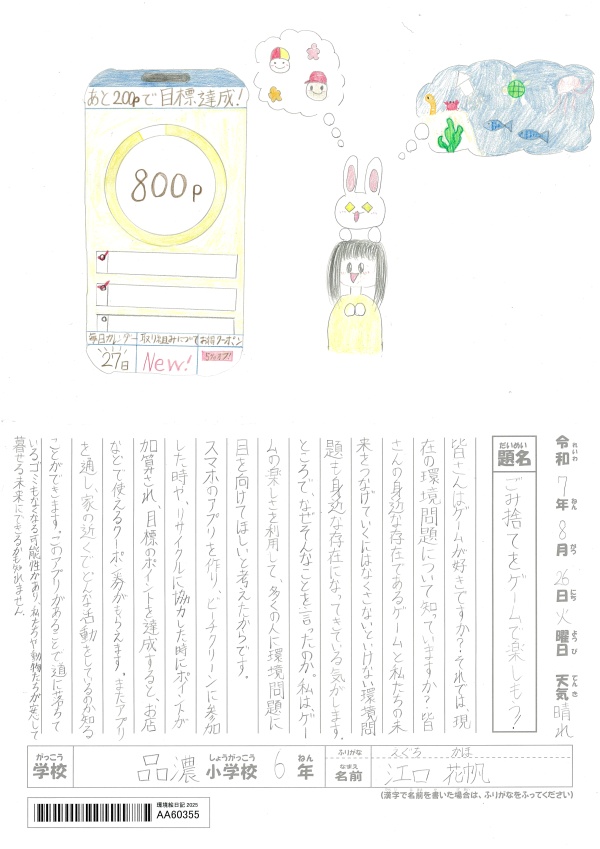 あと200pで目標達成!
800p
毎日カレンダー
27日
取り組みについて
New!
お得クーポン
5%オフ!
令和7年8月26日火曜日 天気晴れ
れいわ ねん がつ にち ようび てんき
だいめい
題名
ごみ捨てをゲームで楽しもう!
皆さんはゲームが好きですか?それでは、現
在の環境問題について知っていますか?皆
さんの身近な存在であるゲームと私たちの未
来をつなげていくにはなくさないといけない環境問
題も身近な存在になってきている気がします。
ところで、なぜそんなことを言ったのか。私は、ゲー
ムの楽しさを利用して、多くの人に環境問題に
目を向けてほしいと考えたからです。
スマホのアプリを作り、ビーチクリーンに参加
した時や、リサイクルに協力した時にポイントが
加算され、目標のポイントを達成すると、お店
などで使えるクーポン券がもらえます。またアプリ
を通し、家の近くでどんな活動をしているのか知る
ことができます。このアプリがあることで道に落ちて
いるゴミもなくなる可能性があり、私たちや動物たちが安心して
暮せる未来にできるかも知れません。
がっこう
学校
品濃
しょうがっこう
小学校
6
ねん
年
ふりがな
えぐち かほ
なまえ
名前
江口 花帆
(漢字で名前を書いた場合は、ふりがなをふってください)
環境絵日記2025
AA60355